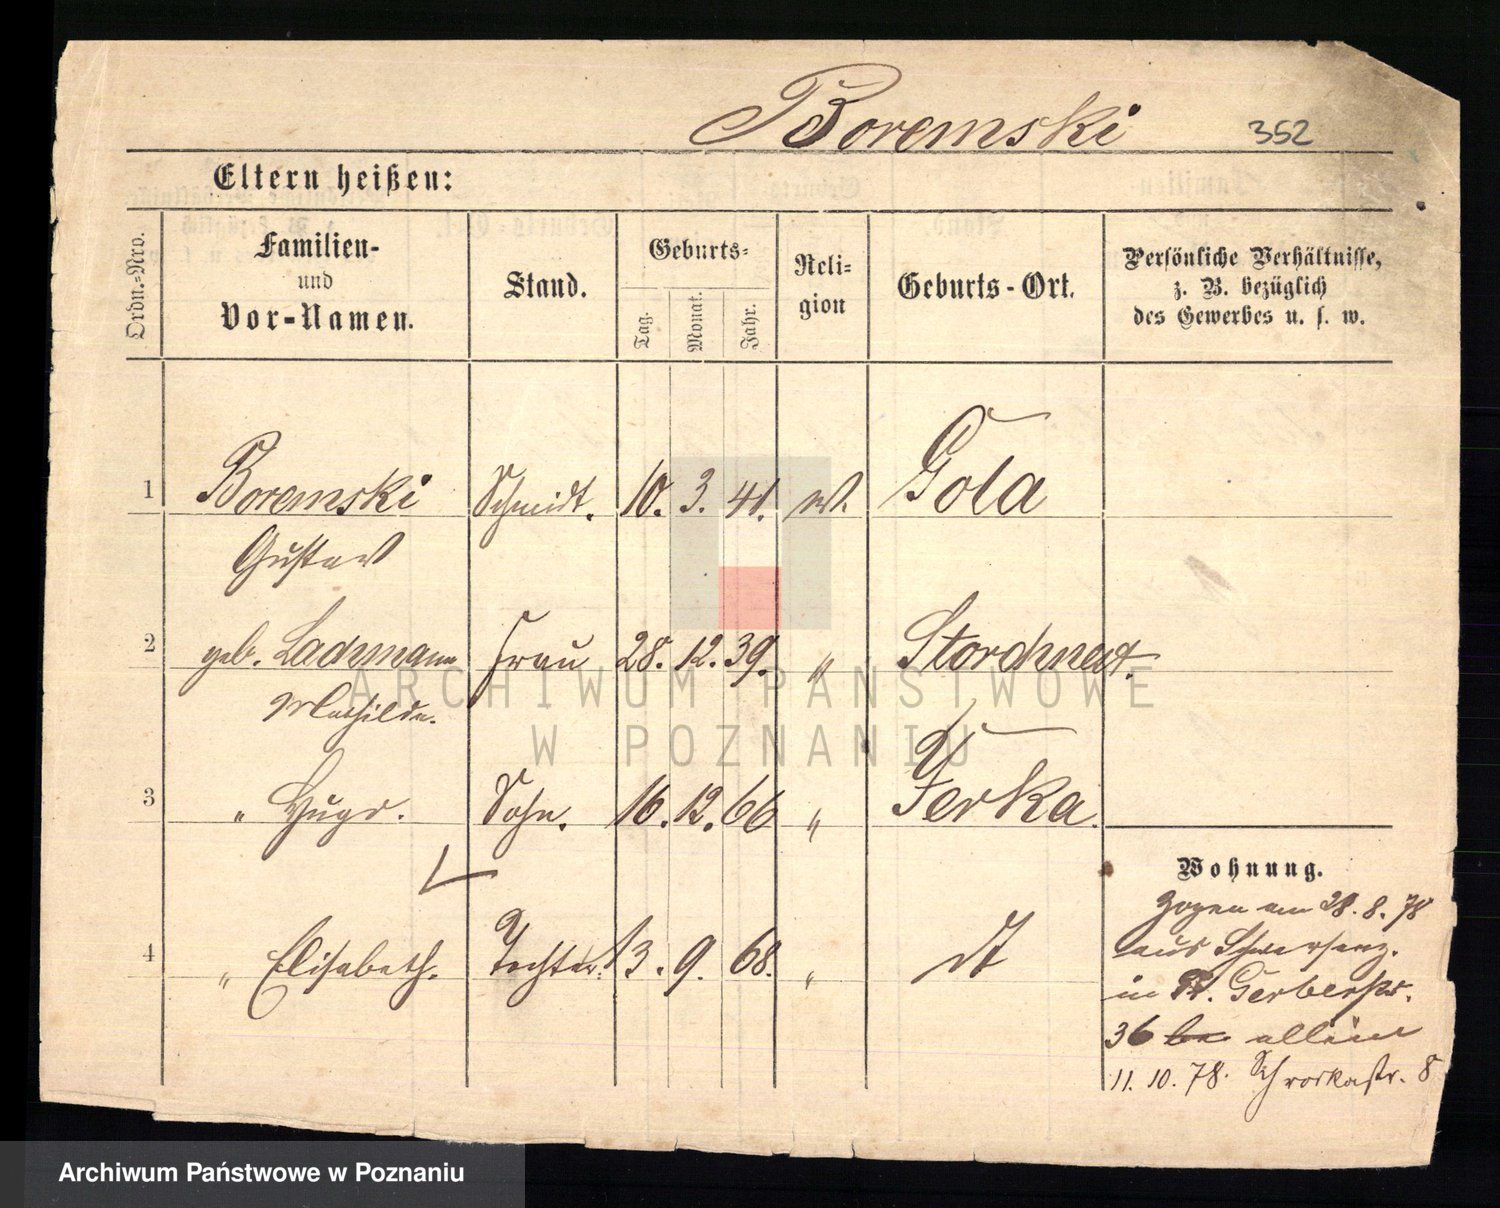 Boremski 352
Eltern heißen:
Ordn.-Nro.
Familien-
und
Vor-Namen.
Stand.
Geburts-
Tag.
Monat.
Jahr.
Reli-
gion
Geburts-Ort.
Persönliche Verhältnisse,
z. B. bezüglich
des Gewerbes u. s. w.
1 Boremski Schmidt. 10. 3. 41. ev. Gola
Gustav
2 geb. Lademann Frau 28. 12. 39. " Storchnest.
Mathilde.
3 " Hugo. Sohn. 16. 12. 66 " Xerka.
4 " Elisabeth. Tochter. 13. 9. 68. " dt
Wohnung.
Zogen am 28. 8. 78
aus Schwersenz.
in Kl. Gerberstr.
36 be allein
11. 10. 78. Schrodkastr. 8
ARCHIWUM PAŃSTWOWE
W POZNANIU
Archiwum Państwowe w Poznaniu